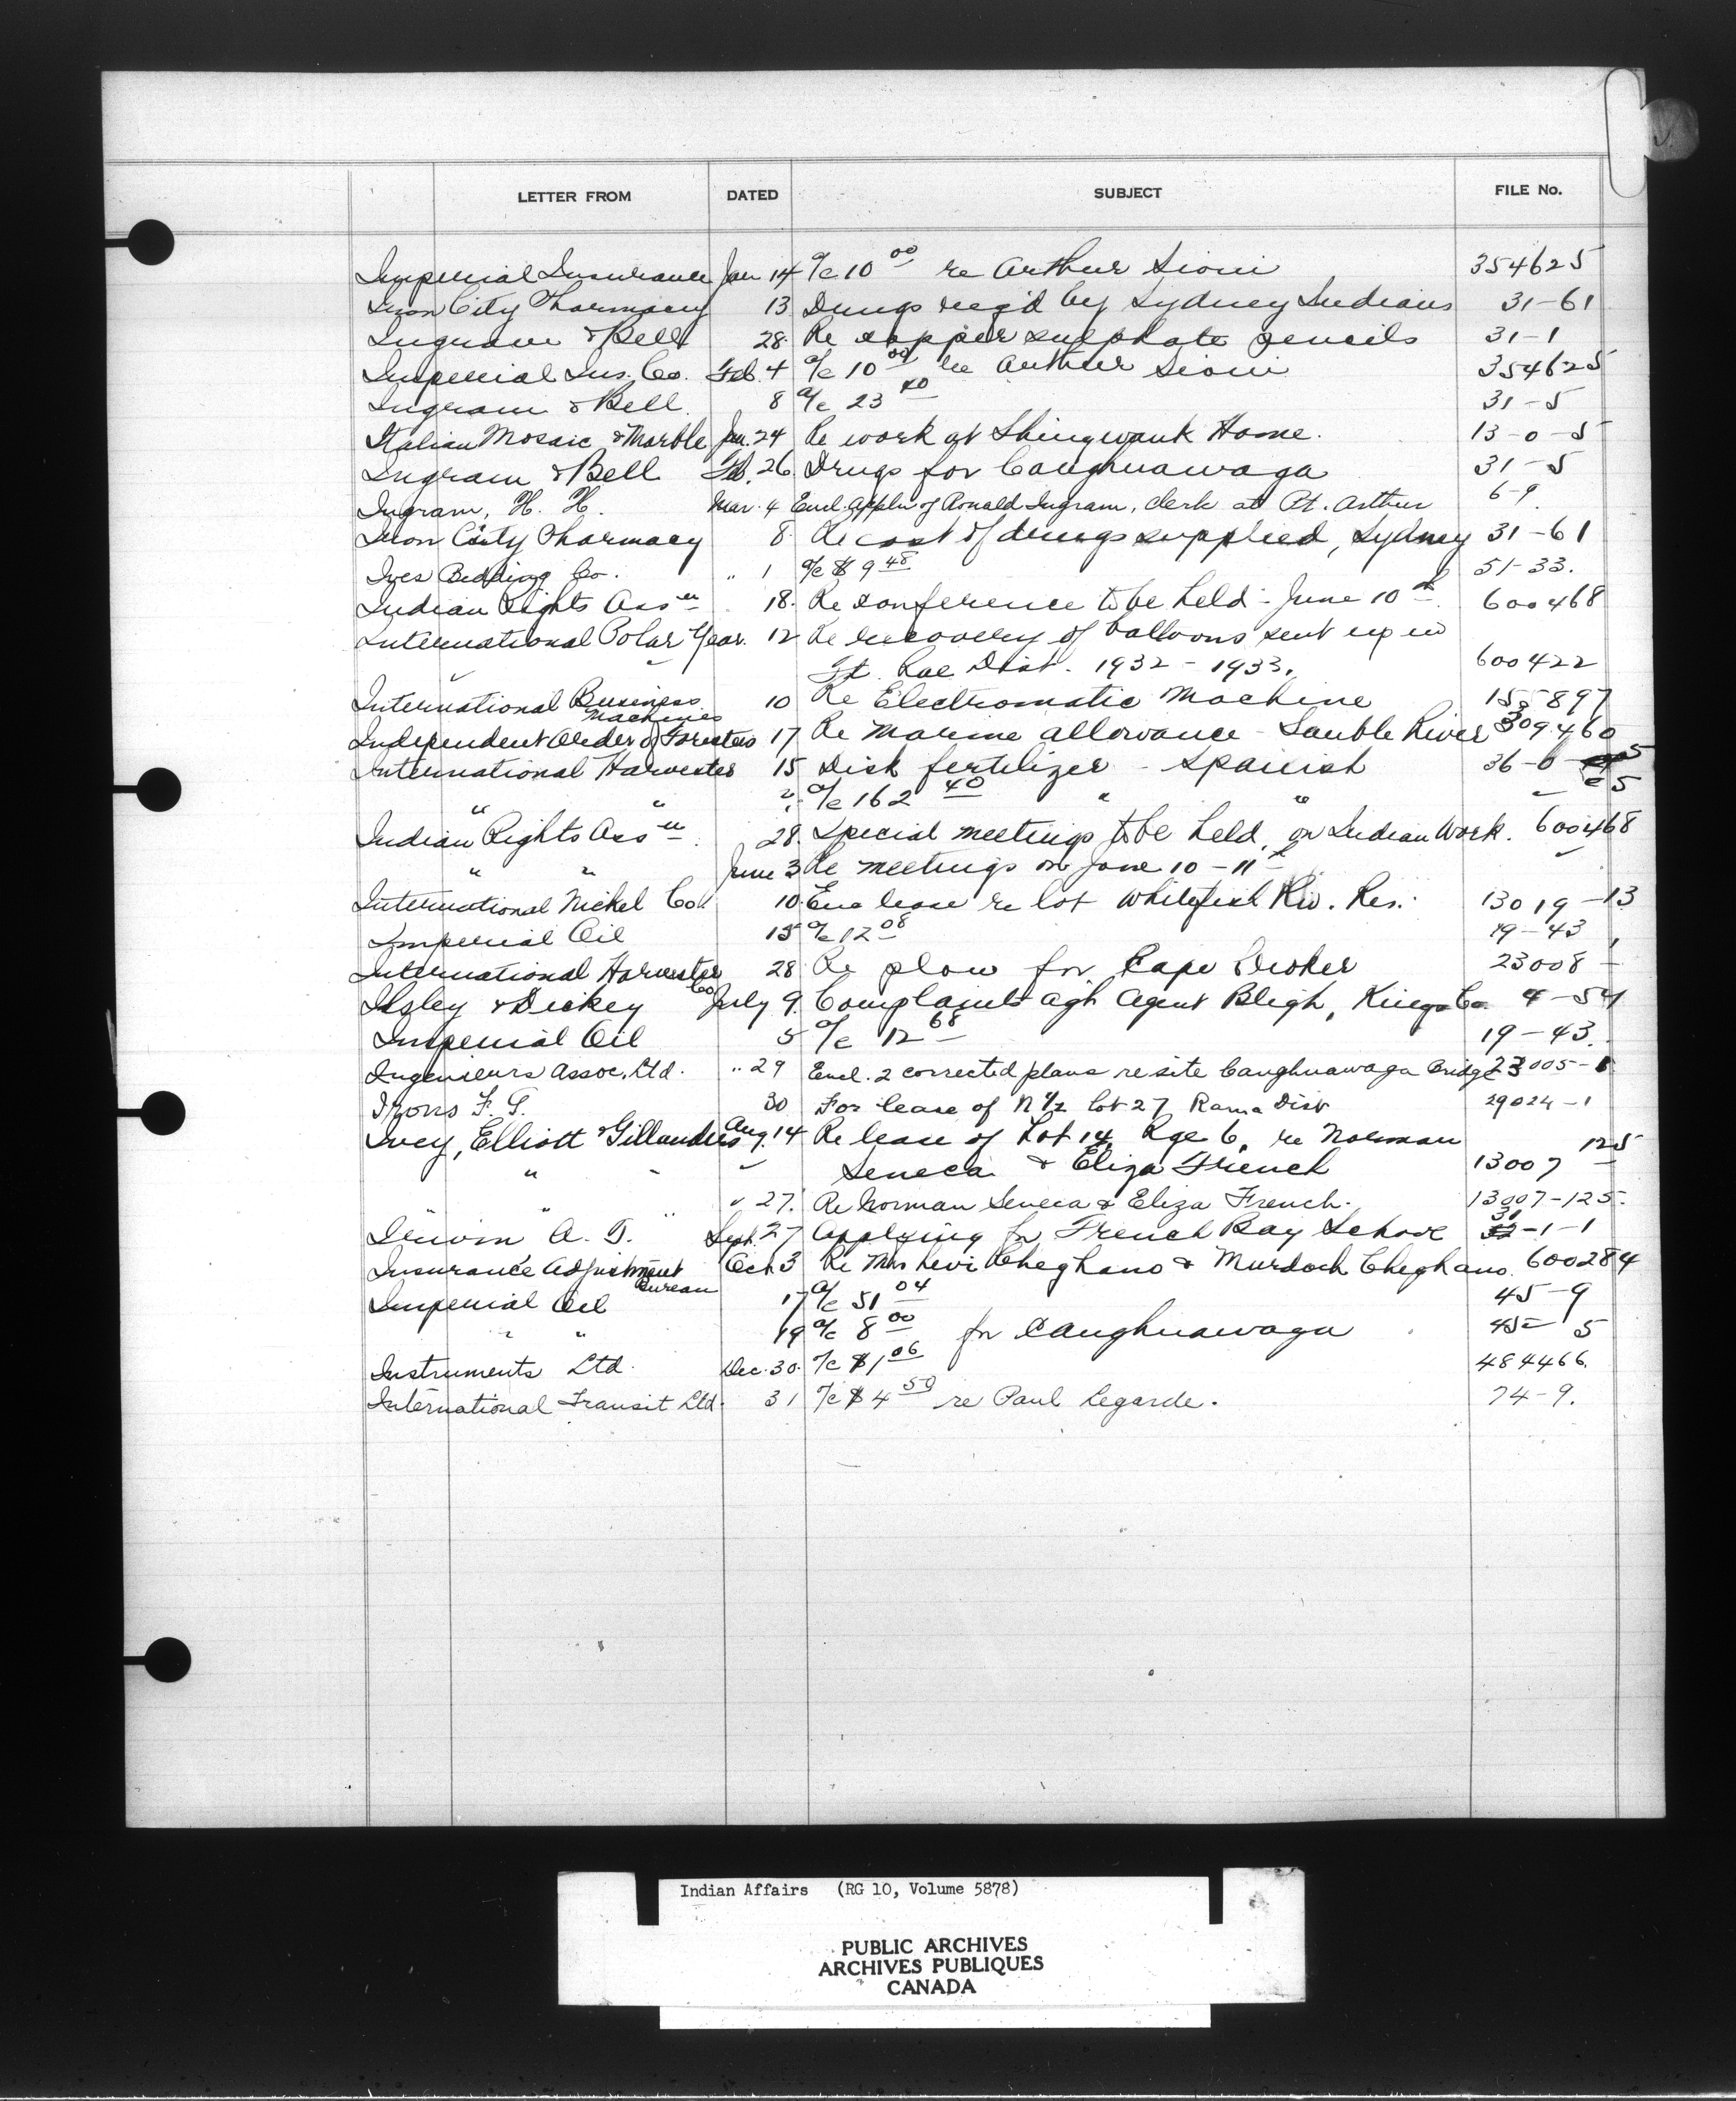 LETTER FROM DATED SUBJECT FILE No.
Imperial Insurance Jan 14 a/c 10 00 re Arthur Sioui 354625
Iron City Pharmacy 13 Drugs req'd by Sydney Indians 31-61
Ingram & Bell 28. Re copper sulphate pencils 31-1
Imperial Ins. Co. Feb. 4 a/c 10 00 re Arthur Sioui 354625
Ingram & Bell. 8 a/c 23 40 31-5
Italian Mosaic & Marble Jan. 24 Re work at Shingwauk Home. 13-0-5
Ingram & Bell Feb. 26 Drugs for Caughnawaga 31-5
Ingram, H. H. Mar. 4 Encl. appln of Ronald Ingram, clerk at Pt. Arthur 6-9
Iron City Pharmacy 8 Re cost of drugs supplied, Sydney 31-61
Ives Bedding Co. " 1 a/c $9 48 51-33.
Indian Rights Ass'n 18. Re conference to be held - June 10th. 600468
International Polar Year. 12 Re recovery of balloons sent up in
Ft. Rae Dist. 1932-1933. 600422
International Business 10 Re Electromatic Machine 155897
Machines
Independent Order of Foresters 17 Re marine allowance - Sauble River 309460
International Harvester 15 Disk fertilizer - Spanish 36-6-
" " a/c 162 40 " "
Indian Rights Ass'n. 28. Special meetings to be held, on Indian Work. 600468
" " June 3 Re meetings on June 10-11th
International Nickel Co. 10. Enc lease re lot Whitefish Riv. Res. 13019-13
Imperial Oil 15 a/c 12 08 19-43
International Harvester Co 28 Re plow for Cape Croker 23008-
Ilsley & Dickey July 9. Complaint agh Agent Bligh, Kings Co. 4-54
Imperial Oil 5 a/c 12 68 19-43.
Ingenieurs Assoc. Ltd. " 29 Encl. 2 corrected plans re site Caughnawaga Bridge 23005-1
Irons F. G. 30 For lease of N 1/2 lot 27 Rama Dist 29024-1
Ivey, Elliott & Gillanders Aug. 14 Re lease of Lot 14, Rge 6, re Norman 125
" " " Seneca & Eliza French 13007 -
" " " 27. Re Norman Seneca & Eliza French. 13007-125.
Irwin A. T. Sept. 27 Applying for French Bay School 31-1-1
Insurance Adjustment Oct. 3 Re Mrs Levi Cheghano & Murdoch Cheghano 600284
Bureau
Imperial Oil 17 a/c 51 04 45-9
" " 19 a/c 8 00 for Caughnawaga 45-5
Instruments Ltd. Dec. 30. a/c $1 06 484466.
International Transit Ltd. 31 a/c $4 50 re Paul Legarde. 74-9.
Indian Affairs (RG 10, Volume 5878)
PUBLIC ARCHIVES
ARCHIVES PUBLIQUES
CANADA